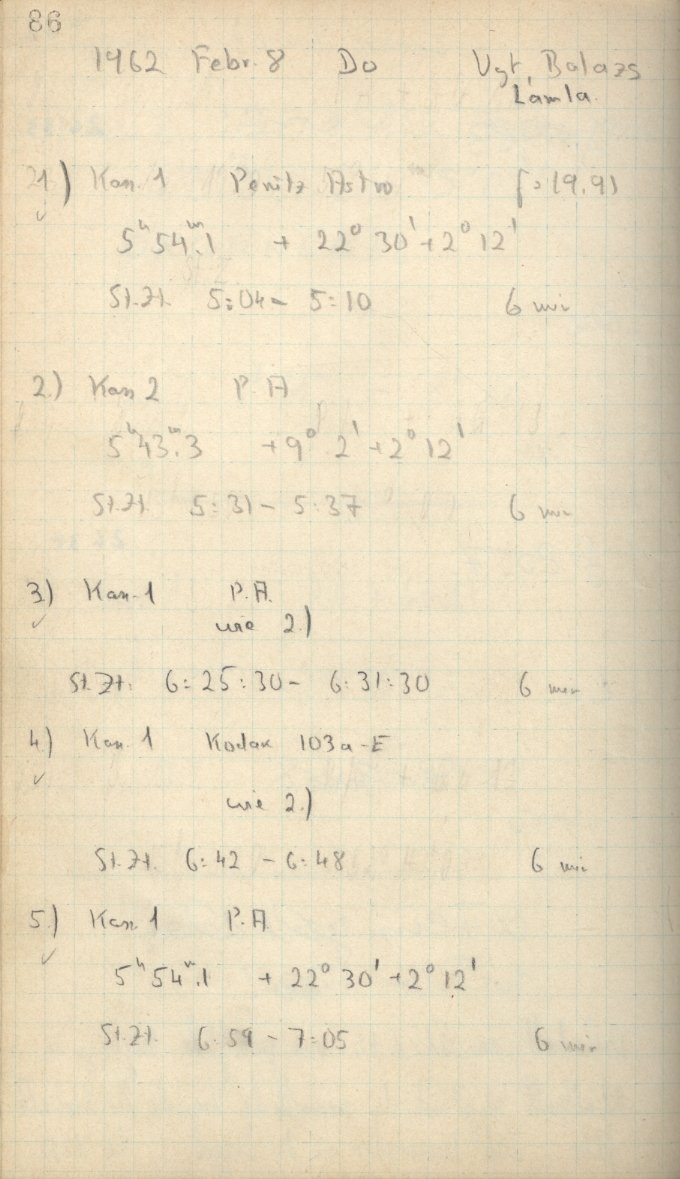 86
1962 Febr. 8 Do Vgt, Balazs
Lamla
1) Kam. 1 Perutz Astro f = 19.91
5ʰ 54ᵐ.1 + 22° 30' + 2° 12'
St.Zt. 5:04 - 5:10 6 min
2.) Kam 2 P. A
5ʰ 43ᵐ.3 + 9° 2' + 2° 12'
St.Zt. 5:31 - 5:37 6 min
3.) Kam. 1 P.A.
wie 2.)
St.Zt. 6:25:30 - 6:31:30 6 min
4.) Kam. 1 Kodak 103a-E
wie 2.)
St.Zt. 6:42 - 6:48 6 min
5.) Kam. 1 P.A.
5ʰ 54ᵐ.1 + 22° 30' + 2° 12'
St.Zt. 6.59 - 7:05 6 min